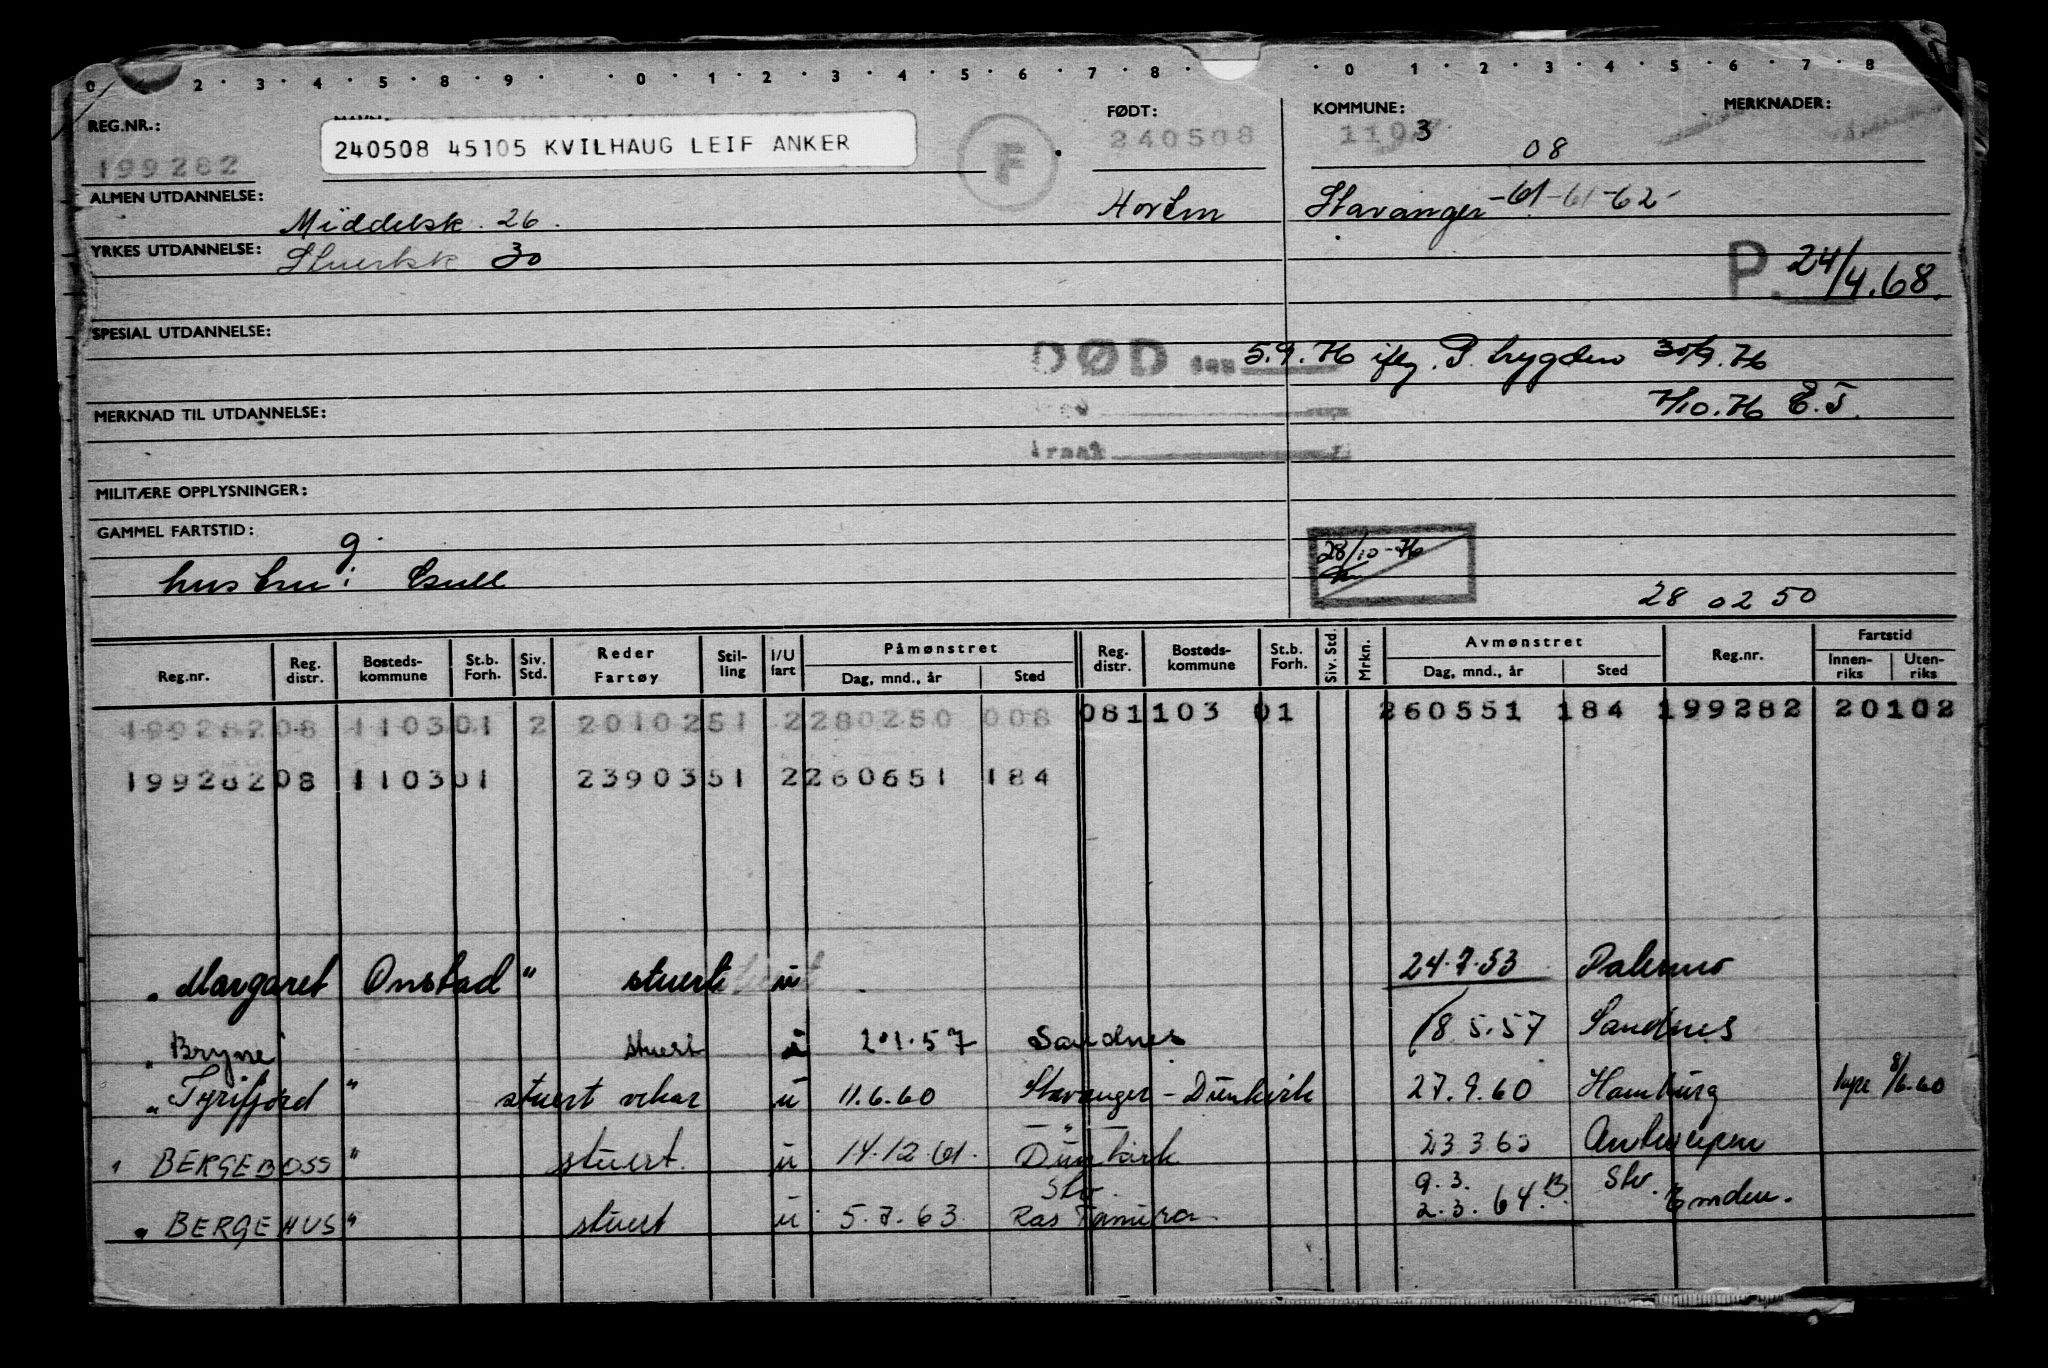 0 2 3 4 5 8 9 0 1 2 3 4 5 6 7 8 0 1 2 3 4 5 6 7 8
REG.NR.: FØDT: KOMMUNE: MERKNADER:
199282 240508 45105 KVILHAUG LEIF ANKER F 240508 110 3 08
ALMEN UTDANNELSE: Middelsk. 26. Horten Stavanger -61-61-62-
YRKES UTDANNELSE: Stuertsk 30 P. 24/4.68.
SPESIAL UTDANNELSE:
DØD den 5.9.76 iflg. P. trygden 30/9.76
MERKNAD TIL UTDANNELSE: 7/10.76 E.T.
MILITÆRE OPPLYSNINGER:
GAMMEL FARTSTID:
g.
hustru: 28/10-76
28 02 50
Reg.nr. Reg. distr. Bosteds-kommune St.b. Forh. Siv. Std. Reder Fartøy Stil-ling I/U fart Påmønstret Dag, mnd., år Sted Reg. distr. Bosteds-kommune St.b. Forh. Siv. Std. Mrkn. Avmønstret Dag, mnd., år Sted Reg.nr. Fartstid Innen-riks Uten-riks
199282 08 1103 01 2 20102 51 2 280250 008 08 1103 01 260551 184 199282 20102
199282 08 1103 01 23903 51 2 260651 184
"Margaret Onstad" stuert u 24.7.53 Palermo
"Bryne" stuert 2.1.57 Sandnes 18.5.57 Sandnes
"Tyrifjord" stuert vikar u 11.6.60 Stavanger - Dunkirk 27.9.60 Hamburg hyre 8/6.60
— " —
"BERGEBOSS" stuert. u 14.12.61. Dunkirk 23.3.63 Antwerpen
Stv. 9.3. Stv.
"BERGEHUS" stuert u 5.7.63. Ras Tanura 2.3.64 B. Emden.